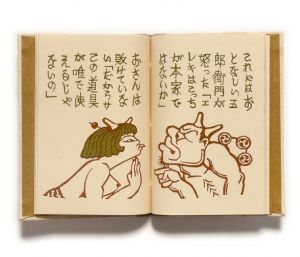 これにはお
となしい五
郎衛門が
怒った「エ
レキはこっち
が本家で
はないか
おさんは
敗けていな
い「だからサ
この道具
が唯で使
えるじゃ
ないの」